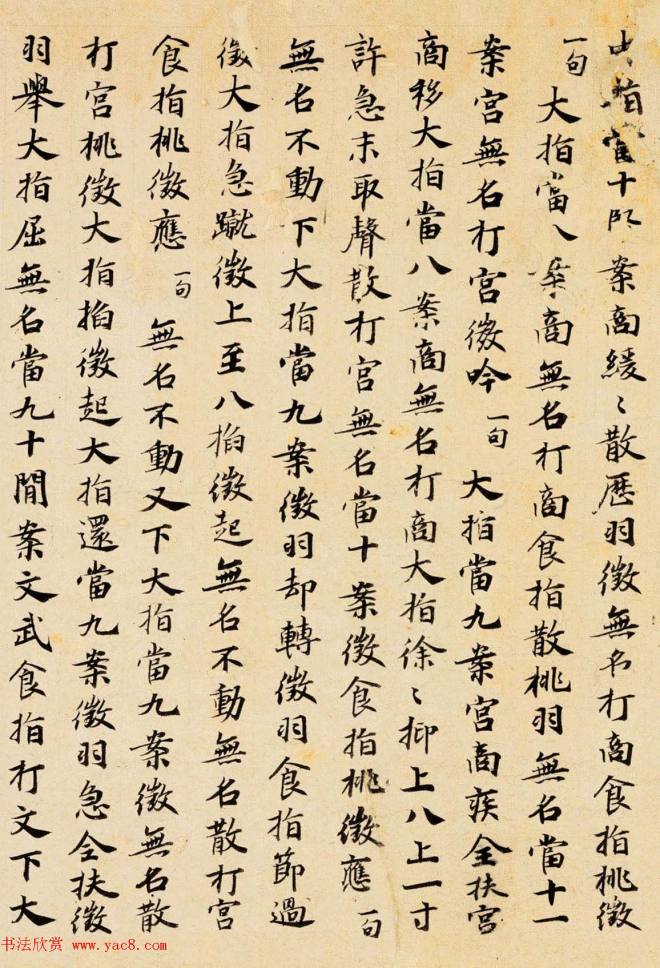 指 十 案商緩〻散歷羽徵無名打商食指挑徵
一句 大指當八案商無名打商食指散挑羽無名當十一
案宮無名打宮徵吟 一句 大指當九案宮商疾全扶宮
商移大指當八案商無名打商大指徐〻抑上八上一寸
許急末取聲散打宮無名當十案徵食指挑徵應 一句
無名不動下大指當九案徵羽却轉徵羽食指節過
徵大指急蹴徵上至八掐徵起無名不動無名散打宮
食指挑徵應 一句 無名不動又下大指當九案徵無名散
打宮挑徵大指掐徵起大指還當九案徵羽急全扶徵
羽舉大指屈無名當九十間案文武食指打文下大
书法欣赏 www.yac8.com